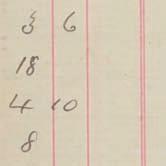 3 6
18
4 10
8